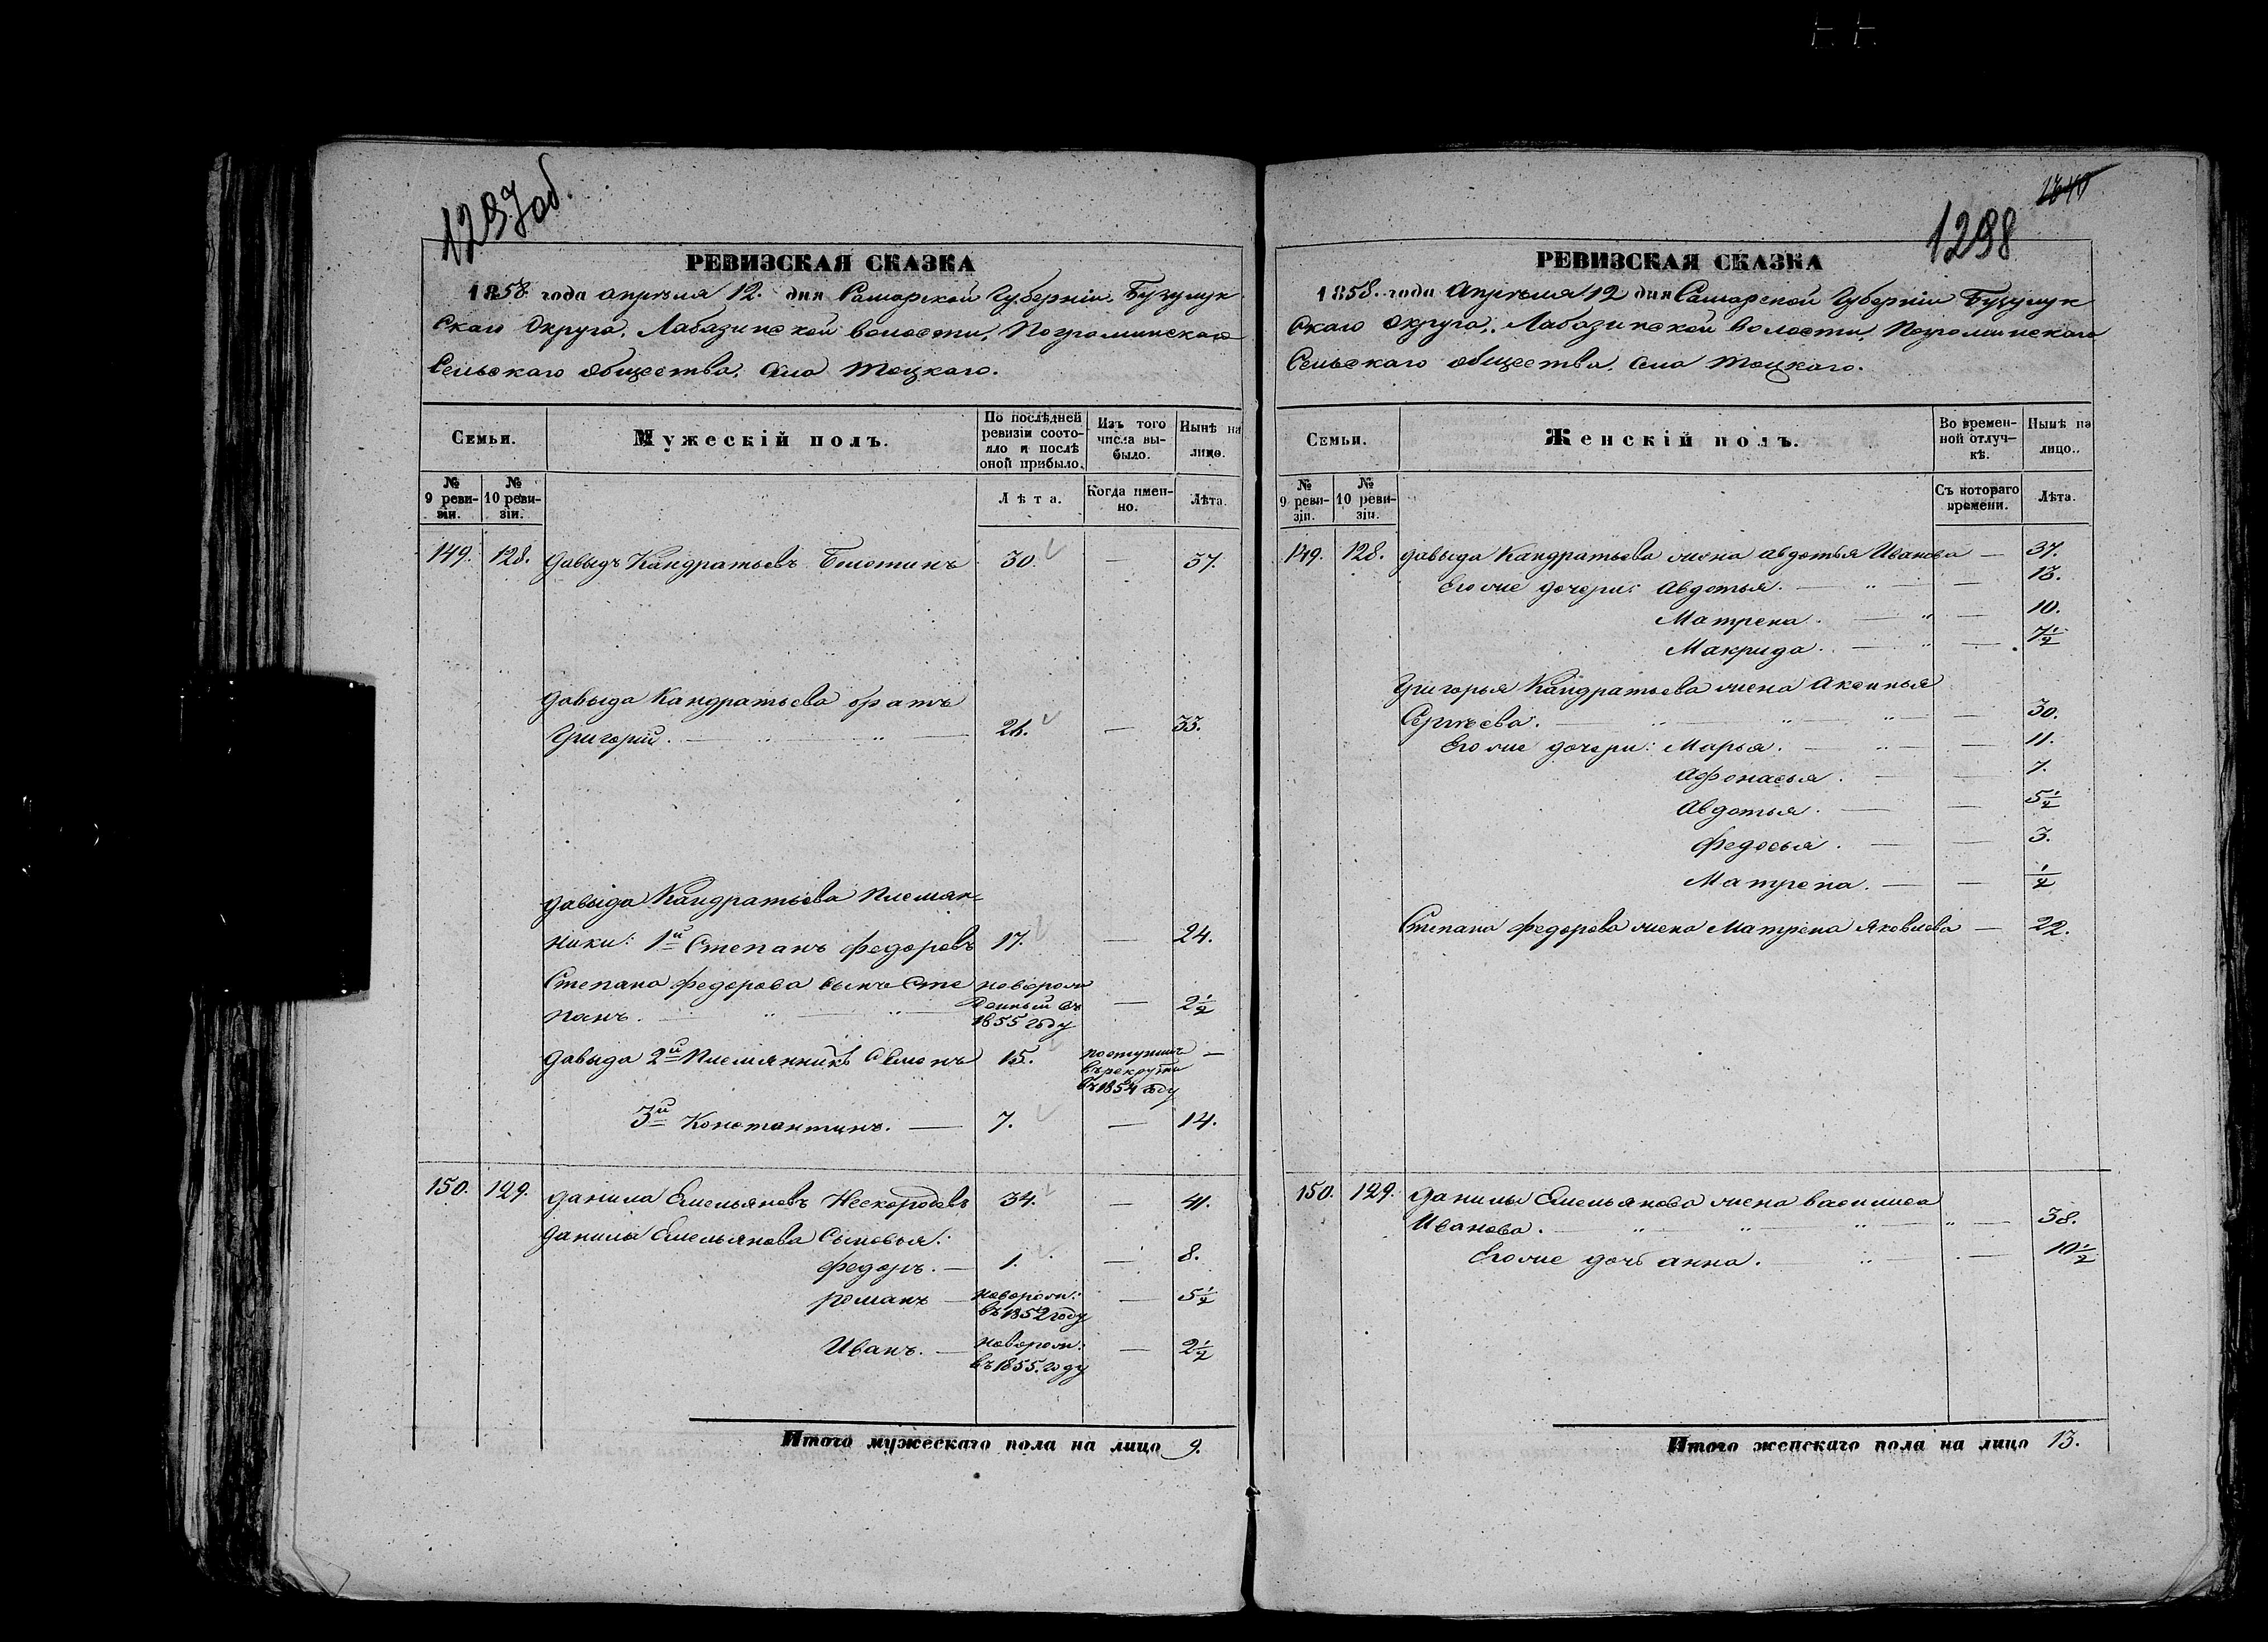 1297 об.
РЕВИЗСКАЯ СКАЗКА
1858 года апрѣля 12. дня Самарской Губерніи, Бузулук
скаго Округа, Лабазинской волости, Погроминскаго
Сельскаго общества, села Тоцкаго.
Семьи.
Мужескій полъ.
По послѣдней ревизіи состояло и послѣ оной прибыло.
Изъ того числа выбыло.
Нынѣ на лицо.
№ 9 ревизіи.
№ 10 ревизіи.
Лѣта.
Когда именно.
Лѣта.
149. 128. Давыдъ Кандратьевъ Болотинъ 30. — 37.
Давыда Кандратьева братъ
Григорій. — 26. — 33.
Давыда Кандратьева племян-
ники: 1й Степанъ Федоровъ 17. — 24.
Степана Федорова сынъ Сте новорож
панъ. — денный въ 1855 году — 2½
Давыда 2й племянникъ Семенъ 15. поступилъ в рекруты въ 1854 году —
3й Константинъ. — 7. — 14.
150. 129. Данила Емельяновъ Нескородевъ 34. — 41.
Данилы Емельянова сыновья:
Федоръ. — 1. — 8.
Романъ — новорож: въ 1852 году — 5½
Иванъ. — новорож: въ 1855 году — 2½
Итого мужескаго пола на лицо 9.
1240
1298
РЕВИЗСКАЯ СКАЗКА
1858. года Апрѣля 12 дня Самарской Губерніи Бузулук
скаго Округа, Лабазинской волости, Погроминскаго
Сельскаго общества, села Тоцкаго.
Семьи.
Женскій полъ.
Во временной отлучкѣ.
Нынѣ на лицо.
№ 9 ревизіи.
№ 10 ревизіи.
Съ котораго времени.
Лѣта.
149. 128. Давыда Кандратьева жена Авдотья Иванова — 37.
Его же дочери: Авдотья. — 13.
Матрена. — 10.
Макрида. — 7½
Григорья Кандратьева жена Аксинья
Сергѣева. — 30.
Его же дочери: Марья. — 11.
Афонасья. — 7.
Авдотья. — 5½
Федосья. — 3.
Матрена. — ½
Степана Федорова жена Матрена Яковлева — 22.
150. 129. Данилы Емельянова жена Василиса
Иванова. — 38.
Его же дочь Анна. — 10½
Итого женскаго пола на лицо 13.